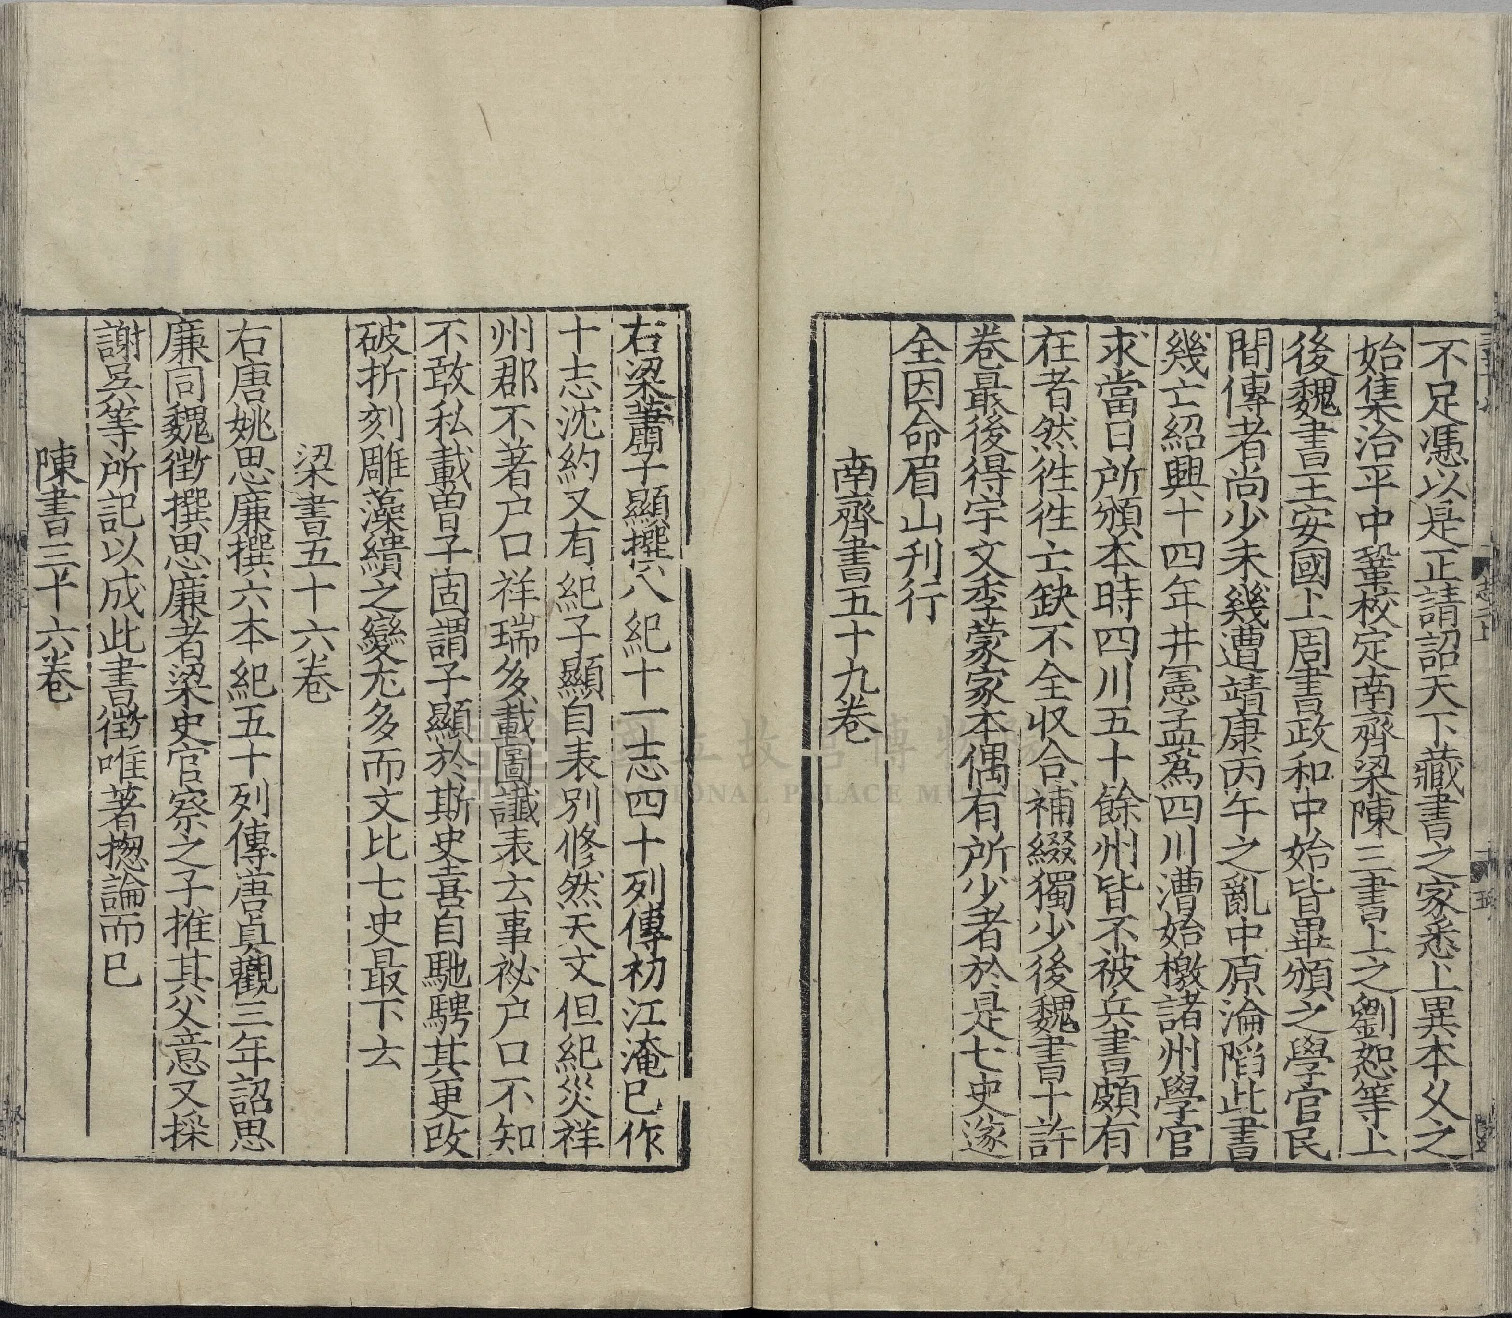 不足憑以是正請詔天下藏書之家悉上異本久之
始集治平中鞏校定南齊梁陳三書上之劉恕等上
後魏書王安國上周書政和中始皆畢頒之學官民
間傳者尚少未幾遭靖康丙午之亂中原淪陷此書
幾亡紹興十四年井憲孟爲四川漕始檄諸州學官
求當日所頒本時四川五十餘州皆不被兵書頗有
在者然徃徃亡缺不全收合補綴獨少後魏書十許
卷最後得宇文季蒙家本偶有所少者於是七史遂
全因命眉山刋行
南齊書五十九卷
右梁蕭子顯撰八紀十一志四十列傳初江淹已作
十志沈約又有紀子顯自表別修然天文但紀災祥
州郡不著户口祥瑞多載圖讖表云事祕户口不知
不敢私載曽子固謂子顯於斯史喜自馳騁其更改
破折刻雕藻繢之變尤多而文比七史最下云
梁書五十六卷
右唐姚思廉撰六本紀五十列傳唐貞觀三年詔思
廉同魏徵撰思廉者梁史官察之子推其父意又採
謝吳等所記以成此書徵唯著揔論而已
陳書三十六卷
國立故宮博物院
NATIONAL PALACE MUSEUM